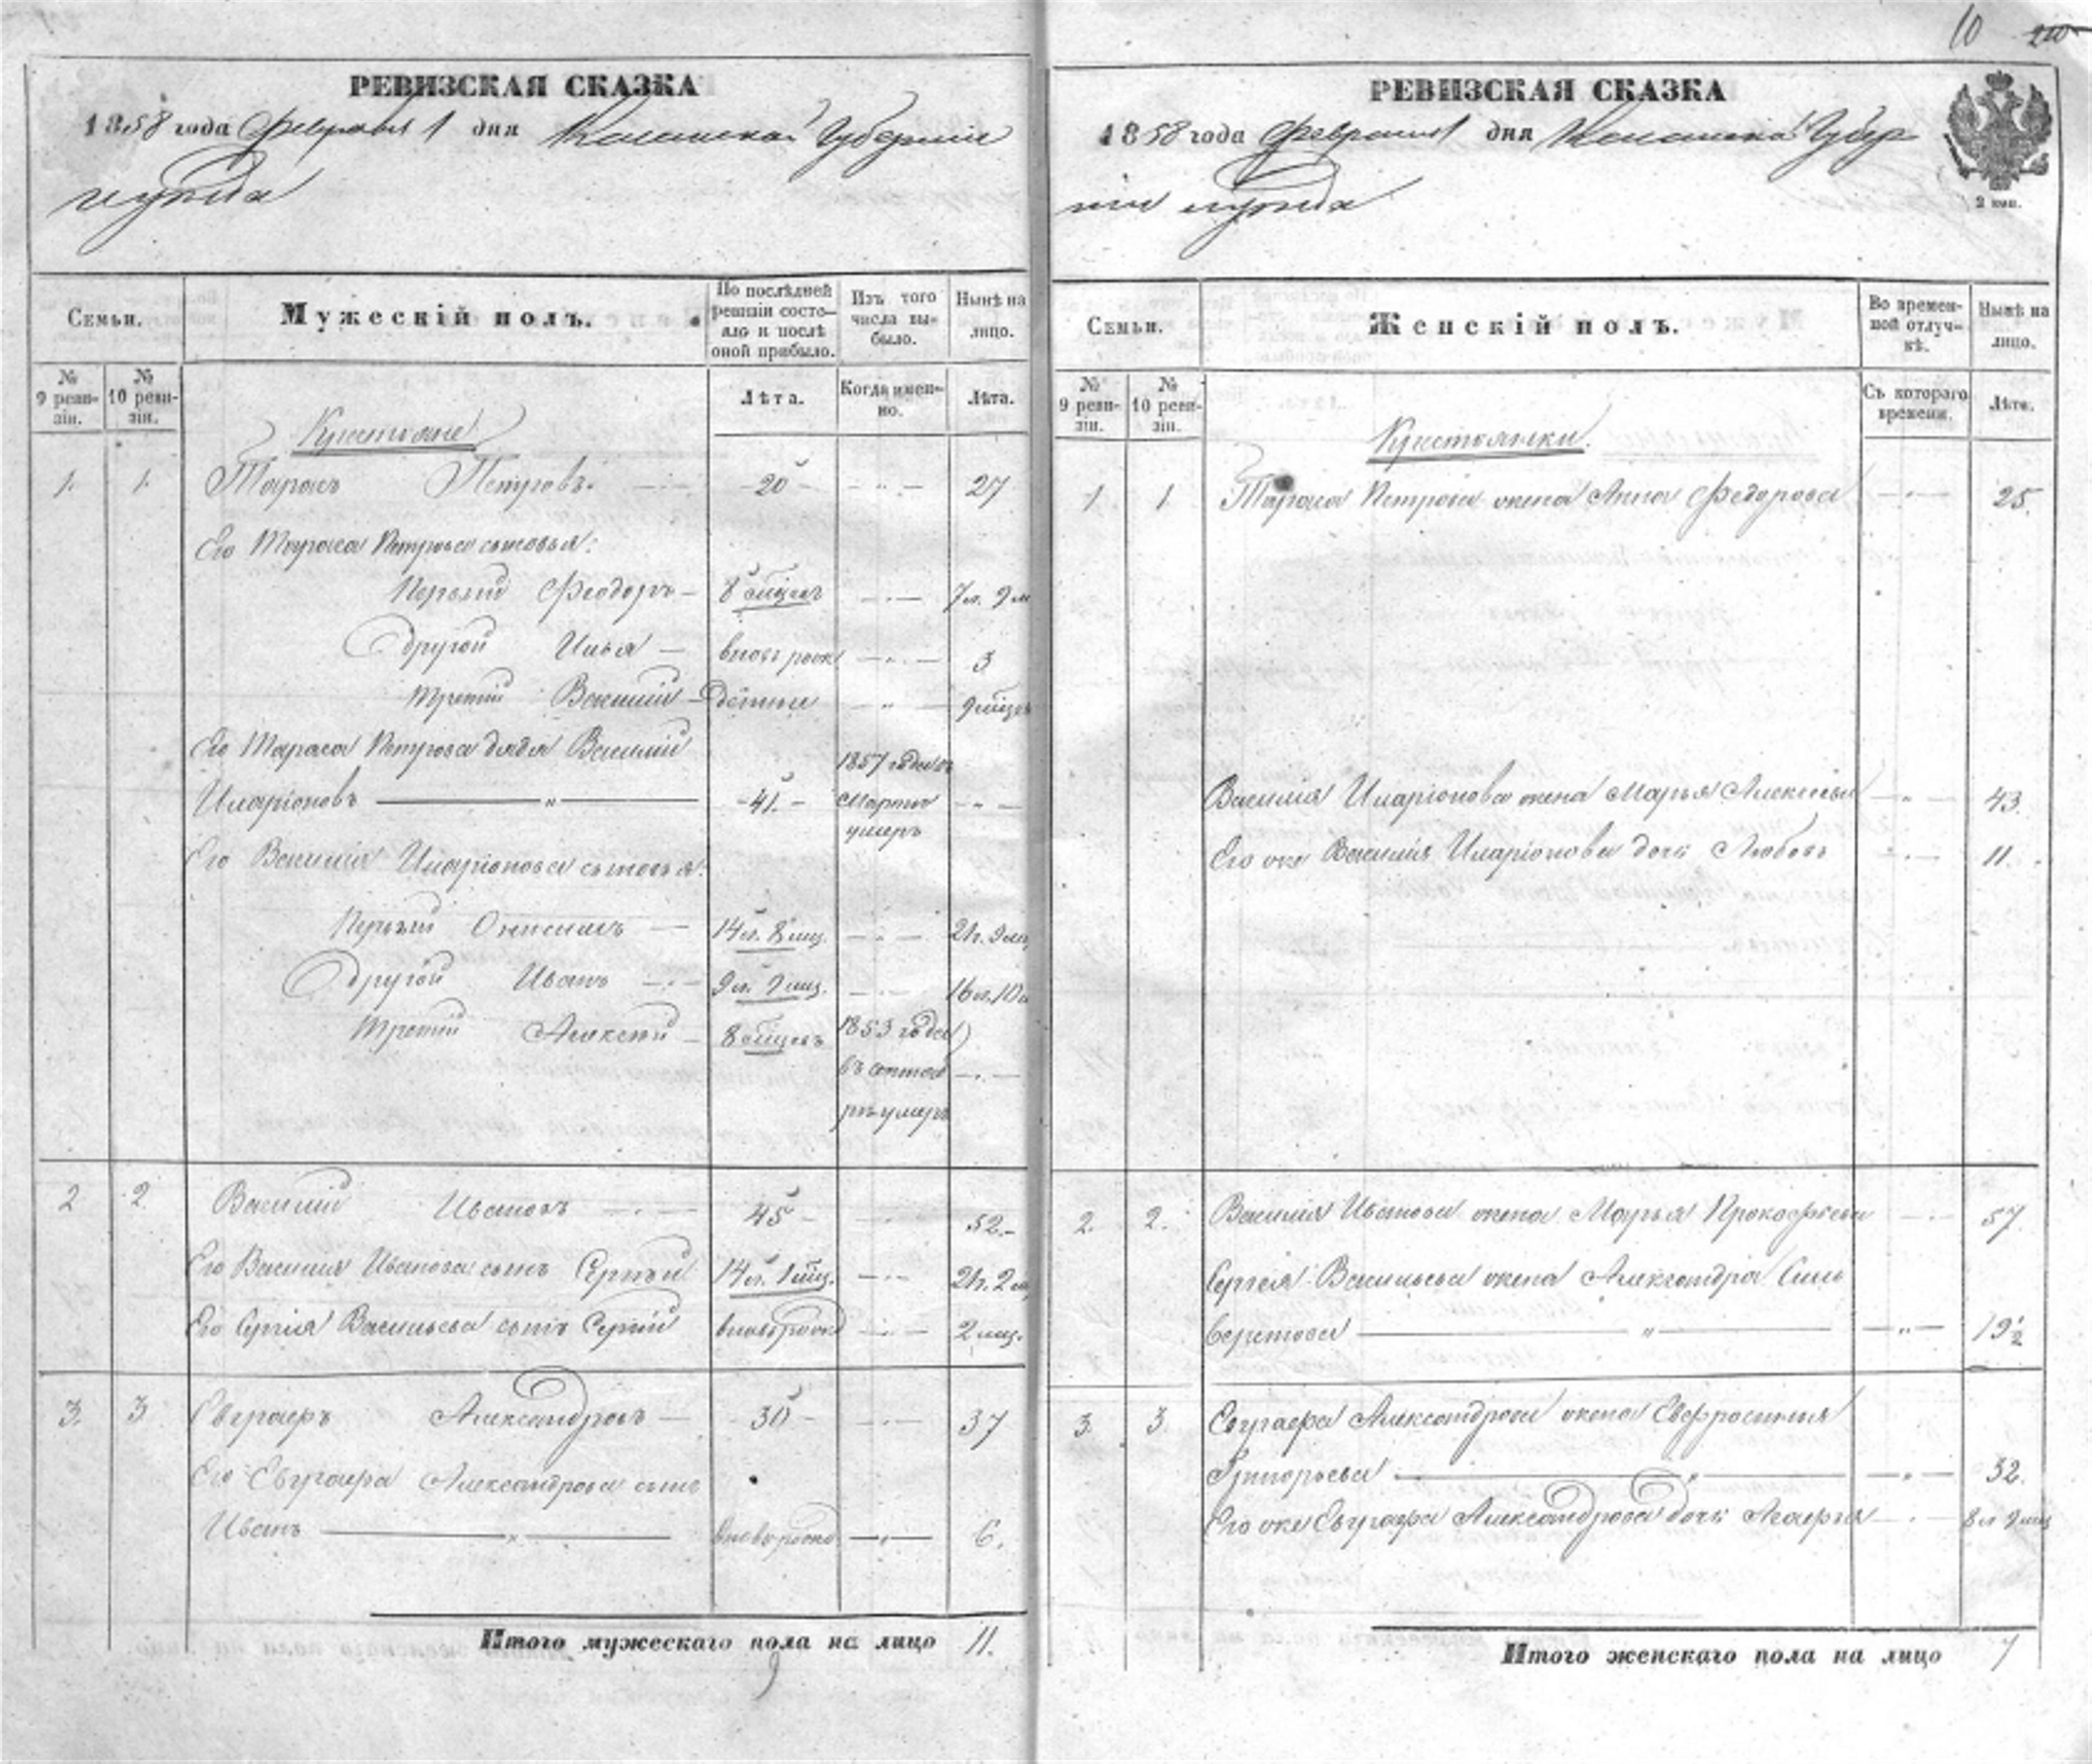 10 210
РЕВИЗСКАЯ СКАЗКА
1858 года Февраля 1 дня Казанской Губерніи
и уѣзда
Семьи.
Мужескій полъ.
По послѣдней ревизіи состояло и послѣ оной прибыло.
Изъ того числа выбыло.
Нынѣ на лицо.
№ 9 ревизіи.
№ 10 ревизіи.
Лѣта.
Когда именно.
Лѣта.
Крестьяне
1. 1. Тарасъ Петровъ. 20 — „ — 27
Его Тараса Петрова сыновья:
Первый Феодоръ — 8 мѣцовъ — „ — 7 л. 9 м
Другой Илья — вновь рож — „ — 3
Третій Василій — — „ — 9 мѣцъ
Его Тараса Петрова дядя Василій
Иларіоновъ — „ — 41. 1857 года въ Мартѣ умеръ — „ —
Его Василія Иларіонова сыновья:
Первый Онисимъ — 14 л. 8 мц. — „ — 21 г. 9 мц
Другой Иванъ — 9 л. 9 мц. — „ — 16 л. 10 м
Третій Алексѣй — 8 мѣцовъ 1853 года въ сентябрѣ умеръ — „ —
2 2. Василій Ивановъ 45 — „ — 52.
Его Василія Иванова сынъ Сергѣй 14 л. 1 мѣц. — „ — 21 г. 2 мц
Его Сергія Васильева сынъ Сергій вновь рожд — „ — 2 мц.
3. 3 Евграфъ Александровъ — 30 — „ — 37
Его Евграфа Александрова сынъ
Иванъ — „ — вновь рожд — „ — 6.
Итого мужескаго пола на лицо 11.
РЕВИЗСКАЯ СКАЗКА
1858 года Февраля 1 дня Казанской Губер
ніи и уѣзда
2 коп.
Семьи.
Женскій полъ.
Во временной отлучкѣ.
Нынѣ на лицо.
№ 9 ревизіи.
№ 10 ревизіи.
Съ котораго времени.
Лѣта.
Крестьянки.
1 1 Тараса Петрова жена Анна Федорова — „ — 25.
Василія Иларіонова жена Марья Алексѣева — „ — 43.
Его же Василія Иларіонова дочь Любовь — „ — 11.
2. 2. Василія Иванова жена Марья Прокофьева — „ — 57.
Сергія Васильева жена Александра Сили
верстова — „ — — „ — 19½
3. 3. Евграфа Александрова жена Евфросинія
Григорьева — „ — — „ — 32.
Его же Евграфа Александрова дочь Марья — „ — 8 л 9 мц
Итого женскаго пола на лицо 7